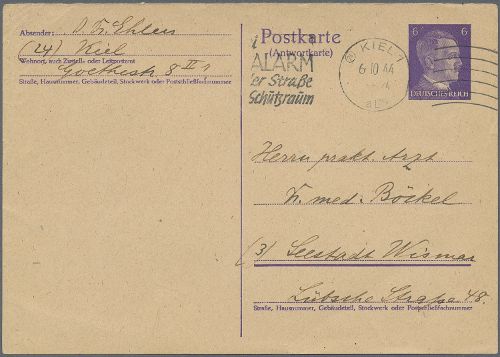 Absender: Ehlers
(24) Kiel
Wohnort, auch Zustell- oder Leitpostamt
Goethestr 8 II
Straße, Hausnummer, Gebäudeteil, Stockwerk oder Postschließfachnummer
Postkarte
(Antwortkarte)
ALARM
er Straße
Schutzraum
KIEL 1
6.10.44
6 6
DEUTSCHES REICH
Herrn prakt. Arzt
Dr. med. Böckel
(3) Seestadt Wismar
Lübsche Straße 48.
Straße, Hausnummer, Gebäudeteil, Stockwerk oder Postschließfachnummer